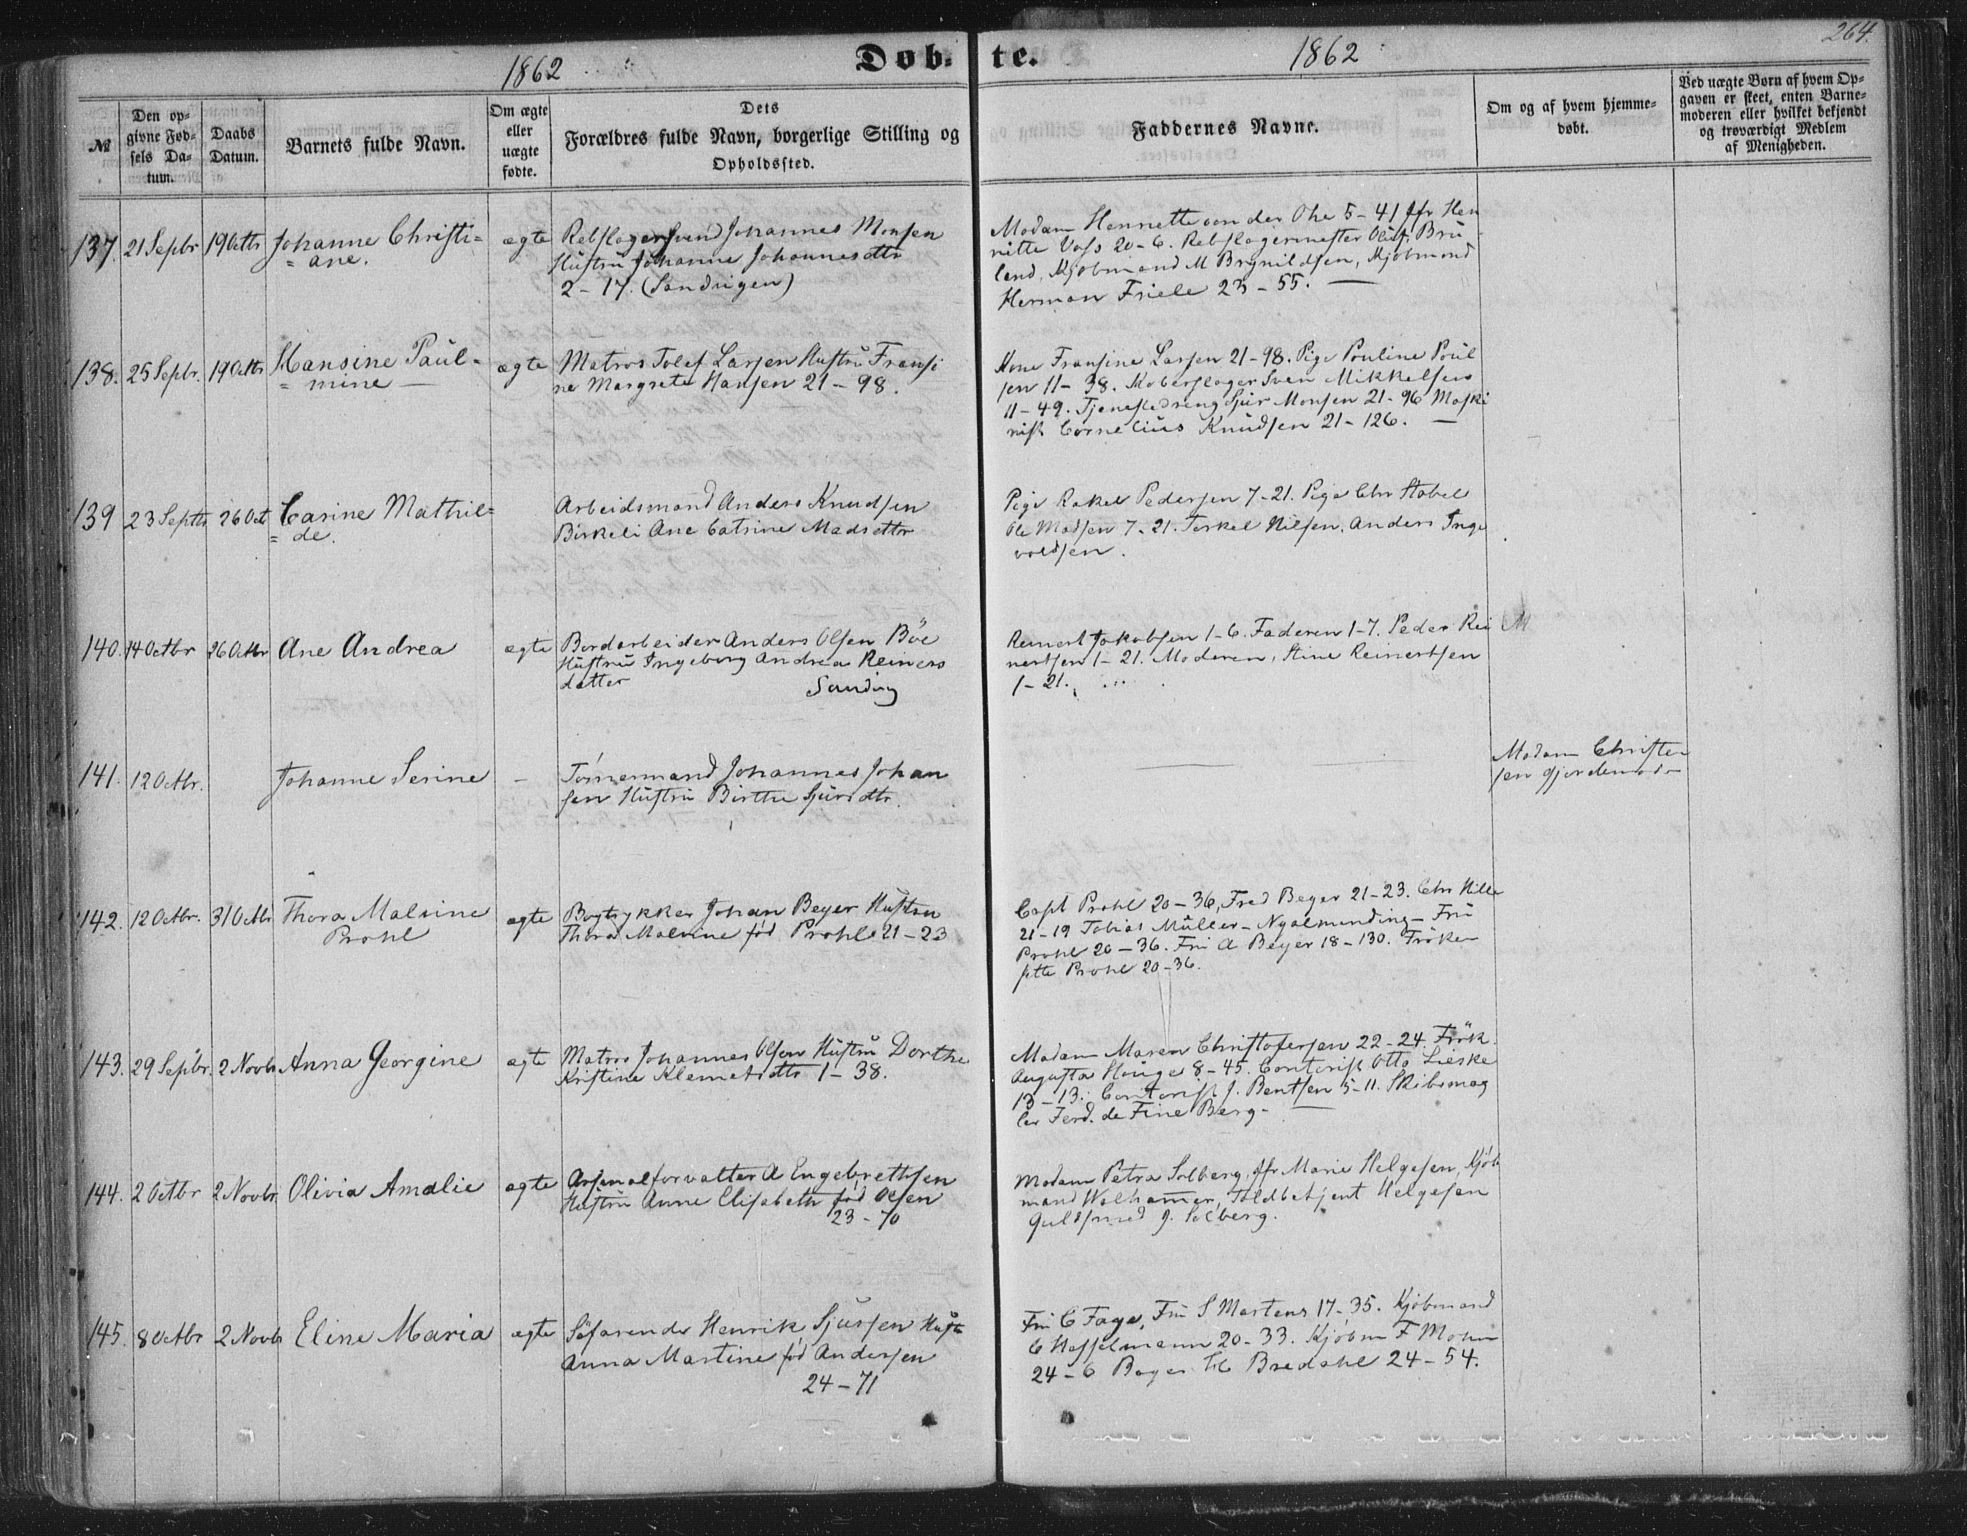 264.
1862
Døb-
te.
1862
№
Den op-
givne Fød-
sels Da-
tum.
Daabs
Datum.
Barnets fulde Navn.
Om ægte
eller
uægte
fødte.
Dets
Forældres fulde Navn, borgerlige Stilling og
Opholdssted.
Faddernes Navne.
Om og af hvem hjemme-
døbt.
Ved uægte Børn af hvem Op-
gaven er skeet, enten Barne-
moderen eller hvilket bekjendt
og troværdigt Medlem
af Menigheden.
137. 21 Sepbr 19 Octbr Johanne Christi=
=ane.
ægte Rebslagersvend Johannes Monsen
Hustru Johanne Johannesdttr
2-17. (Sandvigen)
Madam Henrette von der Ohe 5-41 Jfr Hen
ritte Voss 20-6. Rebslagermester Oluf Brü
land, Kjøbmand M Brynildsen, Kjøbmand
Herman Friele 23-55. —
138. 25 Sepbr. 19 Octbr Hansine Paul=
=mine —
ægte Matros Tolef Larsen Hustru Fransi
ne Margrete Hansen 21-98.
Kone Fransine Larsen 21-98. Pige Pouline Poul
sen 11-38. Koberslager Sven Mikkelsen
11-49. Tjenestedreng Sjur Monsen 21-96 Maski
nist Cornelius Knudsen 21-126. —
139 23 Septbr 26 Oct Carine Mathil=
=de.
Arbeidsmand Anders Knudsen
Birkeli Ane Catrine Madsdttr
Pige Rakel Pedersen 7-21. Pige Chr Stabel
Ole Madsen 7-21. Terkel Nilsen. Anders Inge
voldsen.
140. 14 Octbr 26 Octbr Ane Andrea
ægte Bordarbeider Anders Olsen Böe
Hustru Ingeborg Andrea Reiners
datter Sandvig
Reinert Jakobsen 1-6. Faderen 1-7. Peder Rei
nertsen 1-21. Moderen, Stine Reinertsen
1-21.
M
141. 12 Octbr. Johanne Serine
- Tømmermand Johannes Johan
sen Hustru Birthe Sjursdtr.
Madam Christen
sen Gjordemod-
142. 12 Octbr. 31 Octbr Thora Malvine
Prohl
ægte Bogtrykker Johan Beyer Hustru
Thora Malvine fød Prohl 21-23
Capt Prohl 20-36, Fred Beyer 21-23. Chr Hille
21-19 Tobias Müller - Nyalmending - Fru
Prohl 20-36. Fru A Beyer 18-130. Frøken
Prohl 20-36.
143. 29 Sepbr. 2 Novbr Anna Georgine
ægte Matros Johannes Olsen Hustru Dorthe
Kristine Klemetsdtr 1-38.
Madam Maren Christofersen 22-24. Frøk.
Augusta Houge 8-45. Contorist Otto Lieske
13-13. Contorist J. Bentsen 5-11. Skibsmæg
ler Ferd. de Fine Berg-
144. 2 Octbr 2 Novbr. Olivia Amalie
ægte Arsenalforvalter A Engebrethsen
Hustru Anne Elisabeth fød Olsen
23-70
Madam Petra Solberg, Jfr Marie Helgesen, Kjøb
mand Walhammer, Toldbetjent Helgesen
Guldsmed J. Solberg.
145. 8 Octbr 2 Novbr Eline Maria
ægte Søfarende Henrik Sjursen Hust
Anna Martine fød Andersen
24-71
Fru C Fage, Fru S Martens 17-35. Kjøbmand
C Hesselmann 20-33. Kjøbm F Mohn
24-6 Bager Bredahl 24-54.